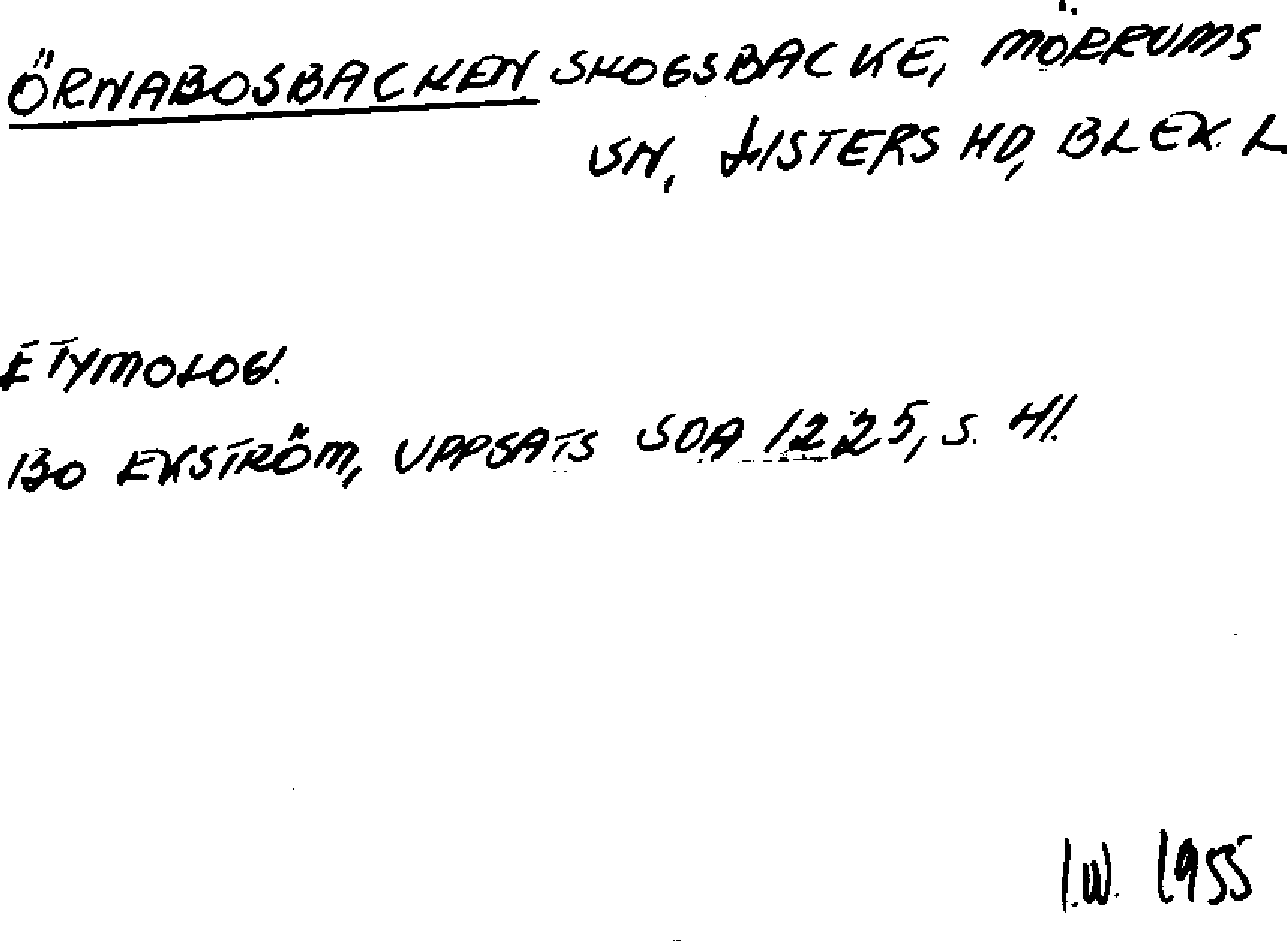 ÖRNABOSBACKEN SKOGSBACKE, MÖRRUMS
SN, LISTERS HD, BLEK. L
ETYMOLOGI.
BO EKSTRÖM, UPPSATS SOA 1225, S. 41.
I.W. 1955